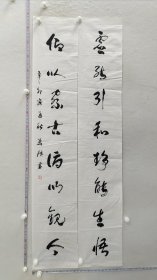 虚能引和静能生悟
仰以察古俯以觀今
辛卯